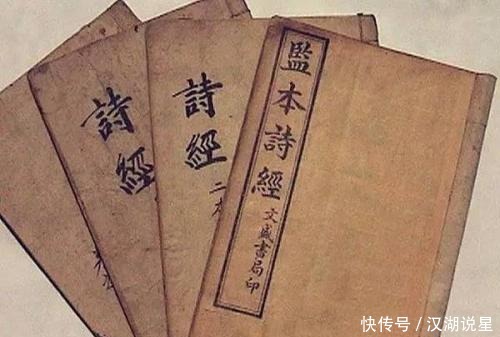 監本詩經
文盛書局印
詩經
二本
詩經
快传号／汉湖说星